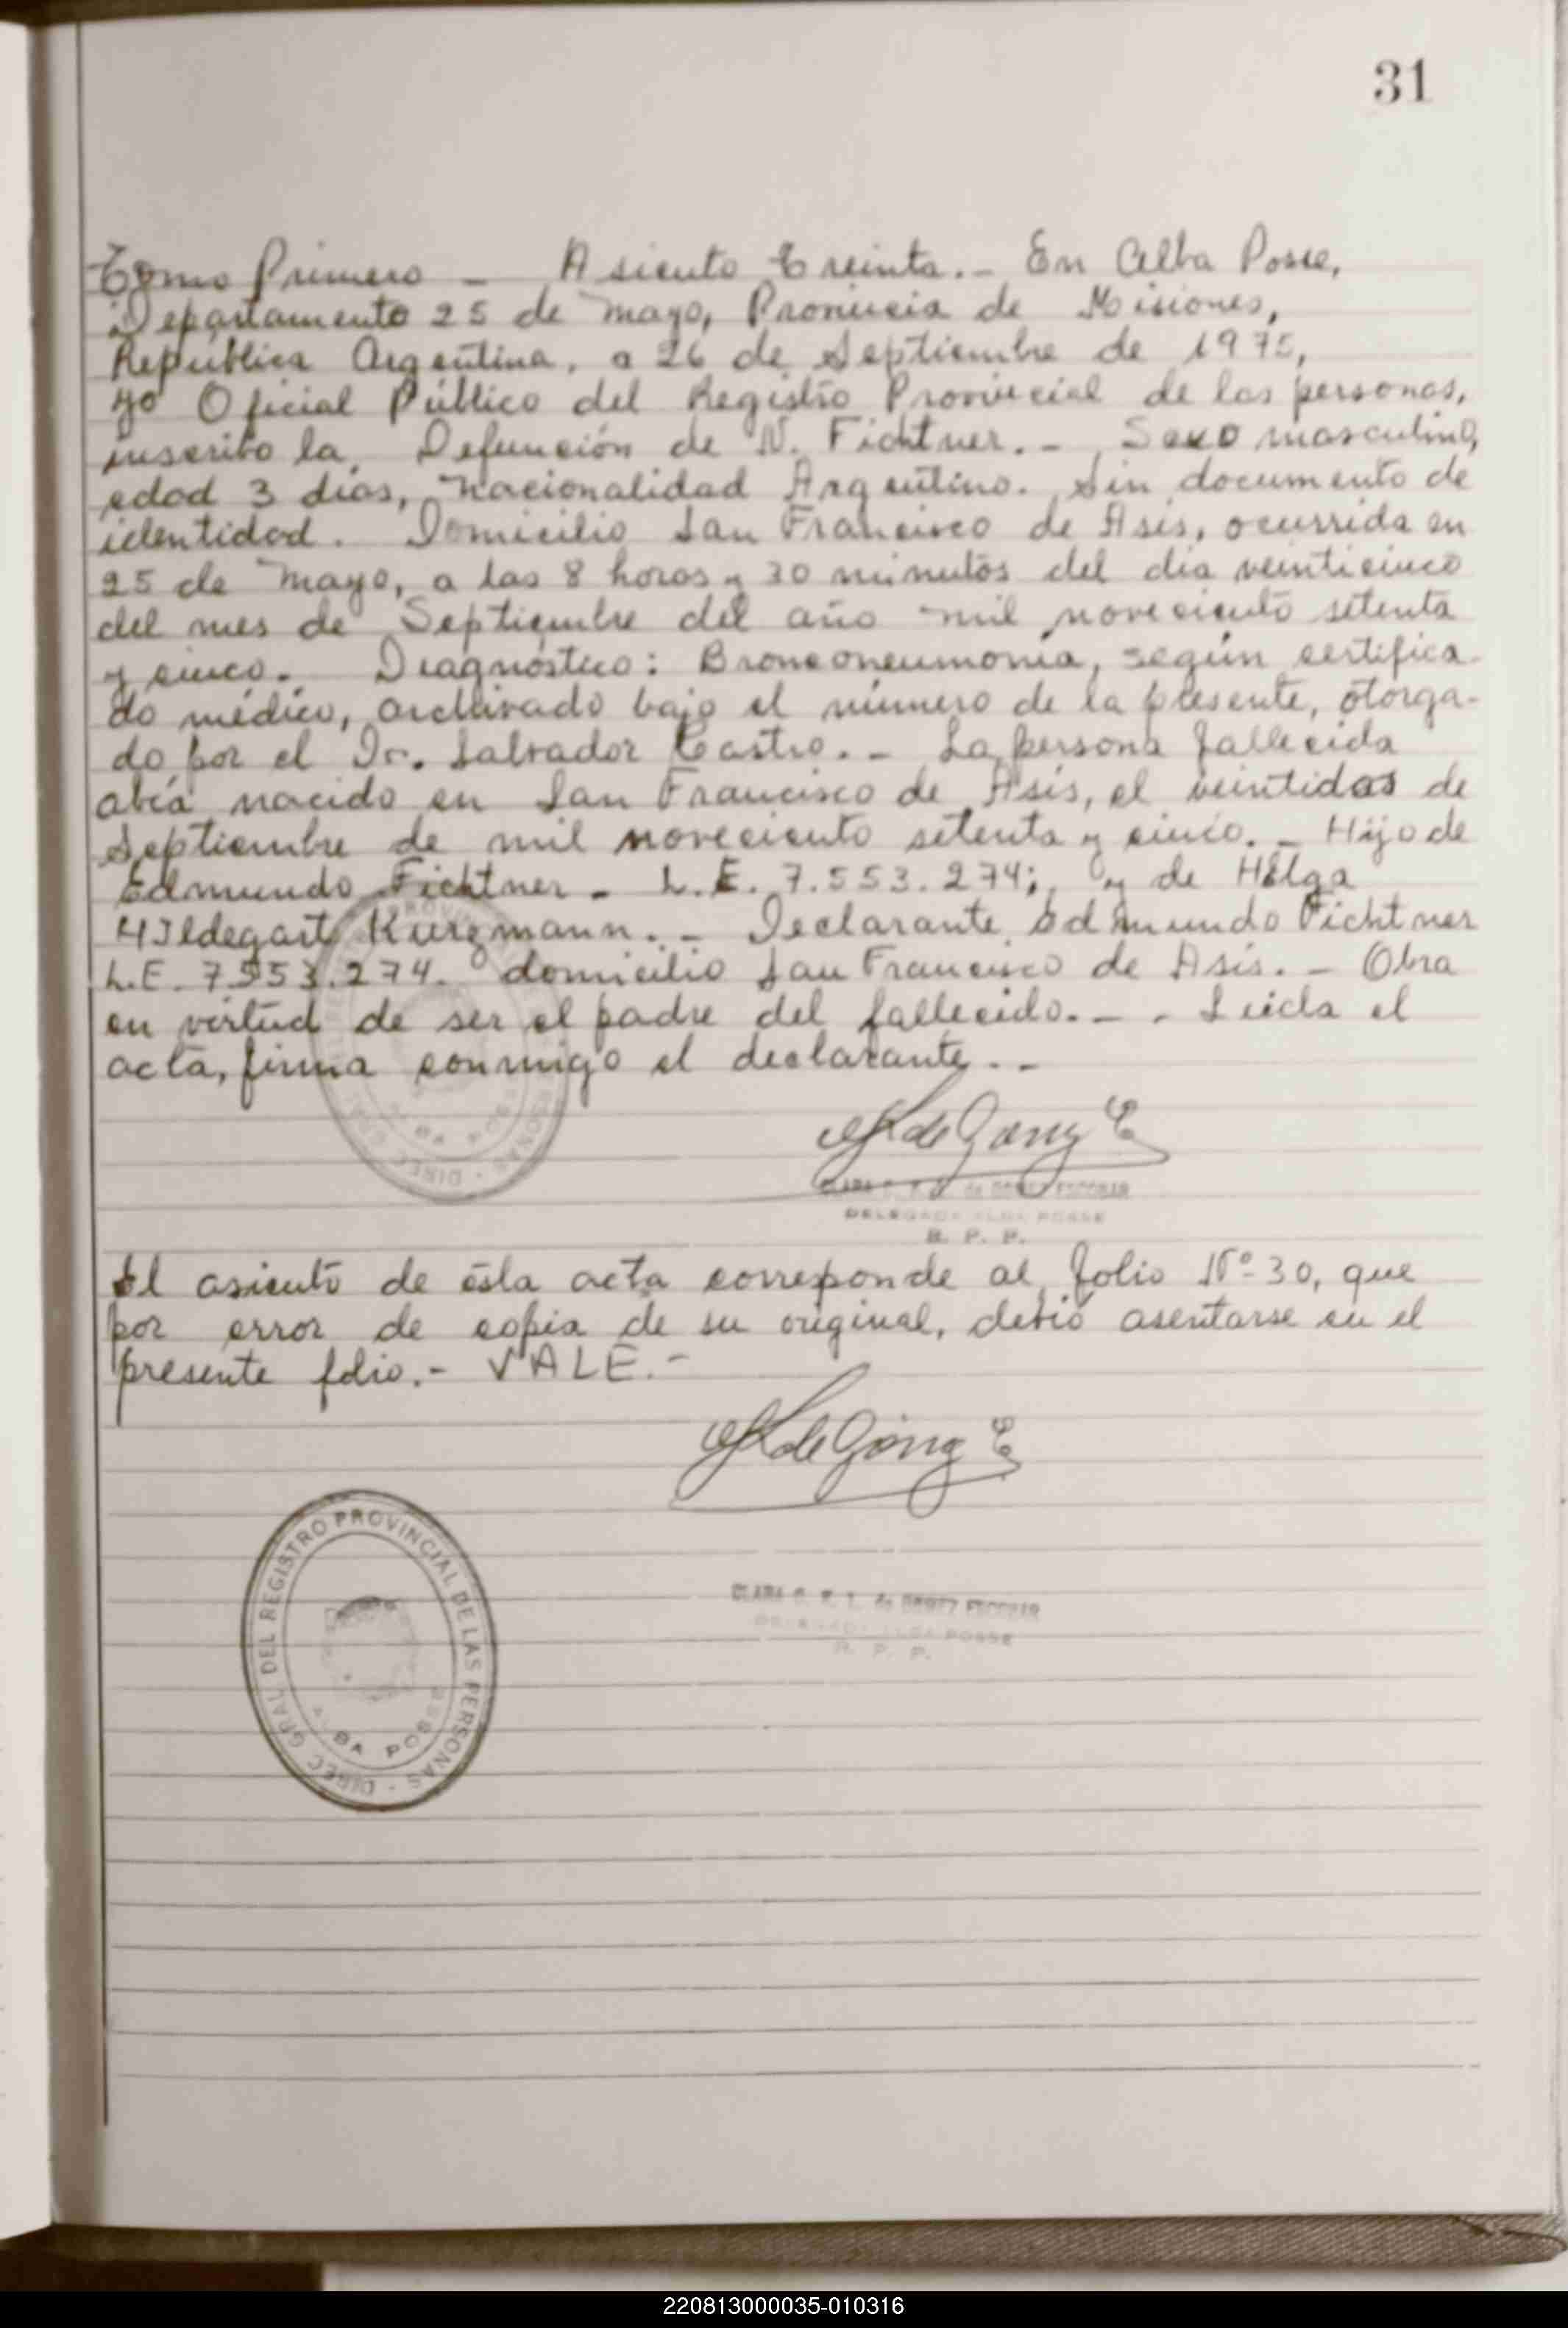 31
Tomo Primero - Asiento Treinta.- En Alba Posse,
Departamento 25 de Mayo, Provincia de Misiones,
República Argentina, a 26 de Septiembre de 1975,
yo Oficial Público del Registro Provincial de las personas,
inscribo la Defunción de N. Fichtner.- Sexo masculino,
edad 3 días, Nacionalidad Argentino. Sin documento de
identidad. Domicilio San Francisco de Asís, ocurrida en
25 de Mayo, a las 8 horas y 30 minutos del día veinticinco
del mes de Septiembre del año mil noveciento setenta
y cinco. Diagnóstico: Bronconeumonía, según certifica-
do médico, archivado bajo el número de la presente, otorga-
do por el Dr. Salvador Castro.- La persona fallecida
abía nacido en San Francisco de Asís, el veintidos de
Septiembre de mil noveciento setenta y cinco.- Hijo de
Edmundo Fichtner - L.E. 7.553.274; y de Hélga
Hildegart Kurzmann.- Declarante Edmundo Fichtner
L.E. 7.553.274. domicilio San Francisco de Asís.- Obra
en virtud de ser el padre del fallecido.-. Leída el
acta, firma conmigo el declarante.-
DELEGADA ALBA POSSE
R. P. P.
El asiento de ésta acta correponde al folio Nº 30, que
por error de copia de su original, debió asentarse en el
presente folio.- VALE.-
DIREC. GRAL. DEL REGISTRO PROVINCIAL DE LAS PERSONAS -
ALBA POSSE
CLARA de ESCOBAR
DELEGADA ALBA POSSE
R. P. P.
220813000035-010316